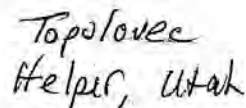 Topolovec
Helper, Utah